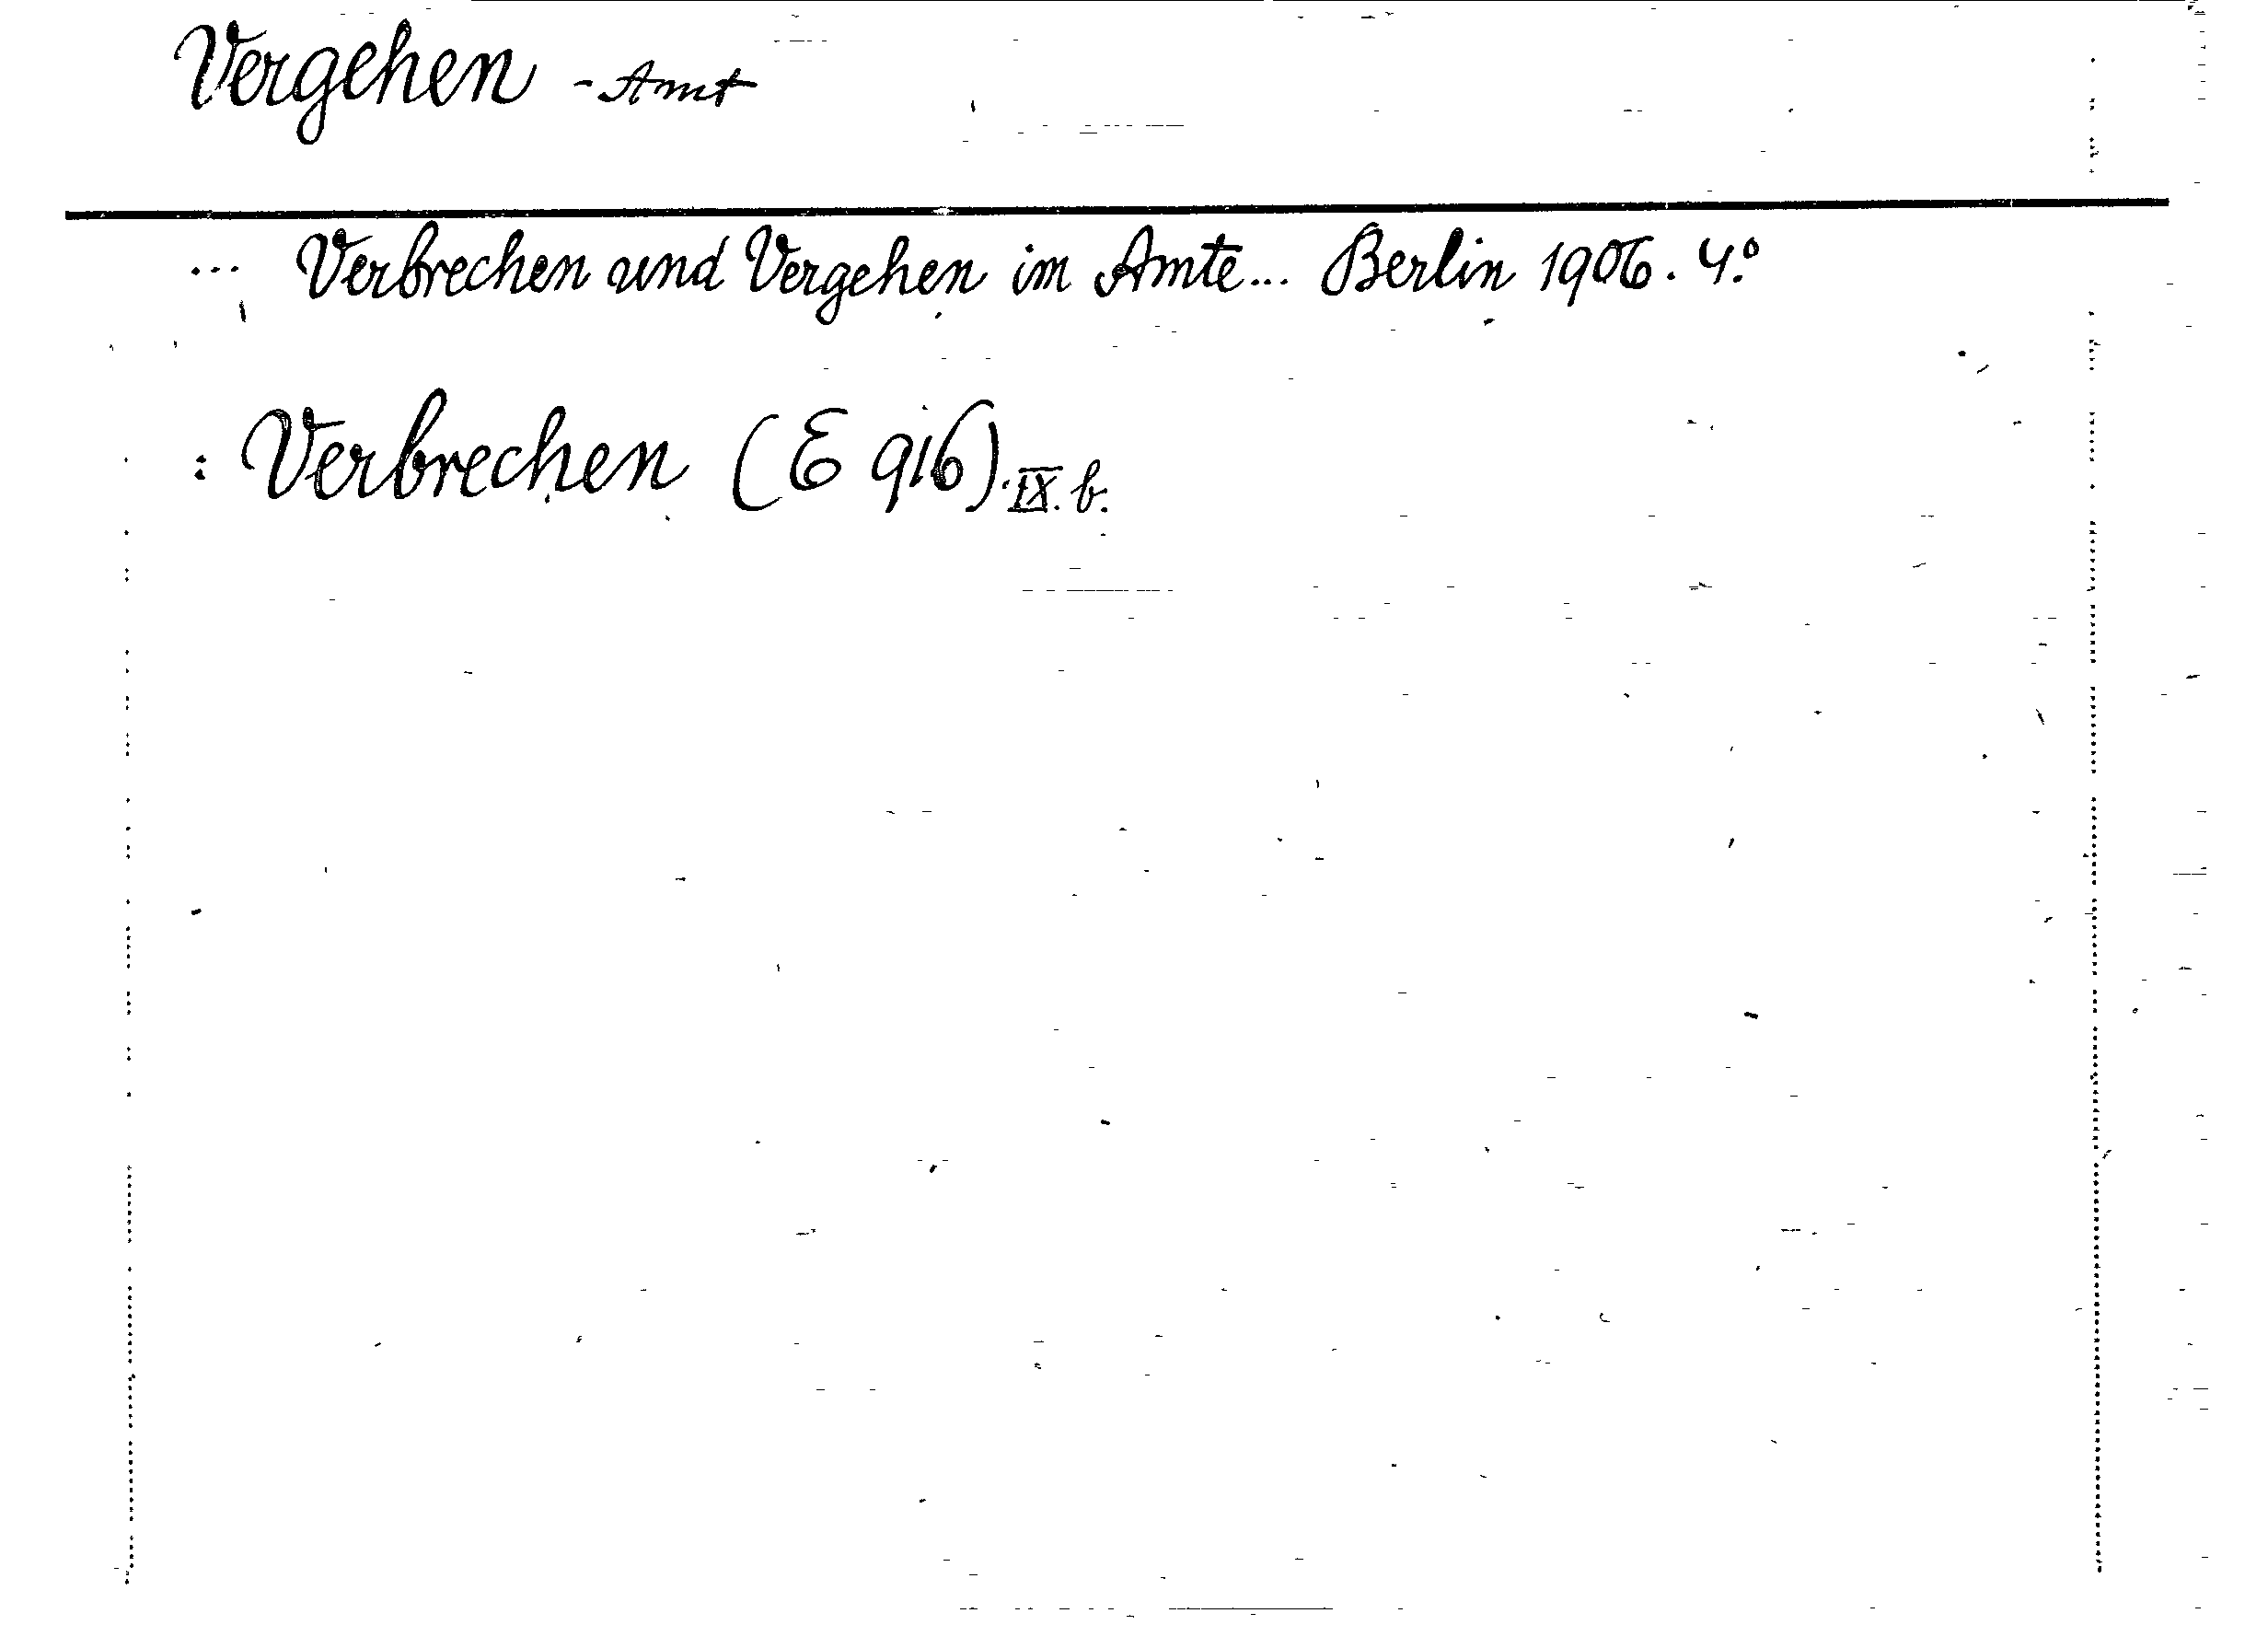 Vergehen - Amt
... Verbrechen und Vergehen im Amte... Berlin 1906. 4.°
: Verbrechen (E 916). IX. b.